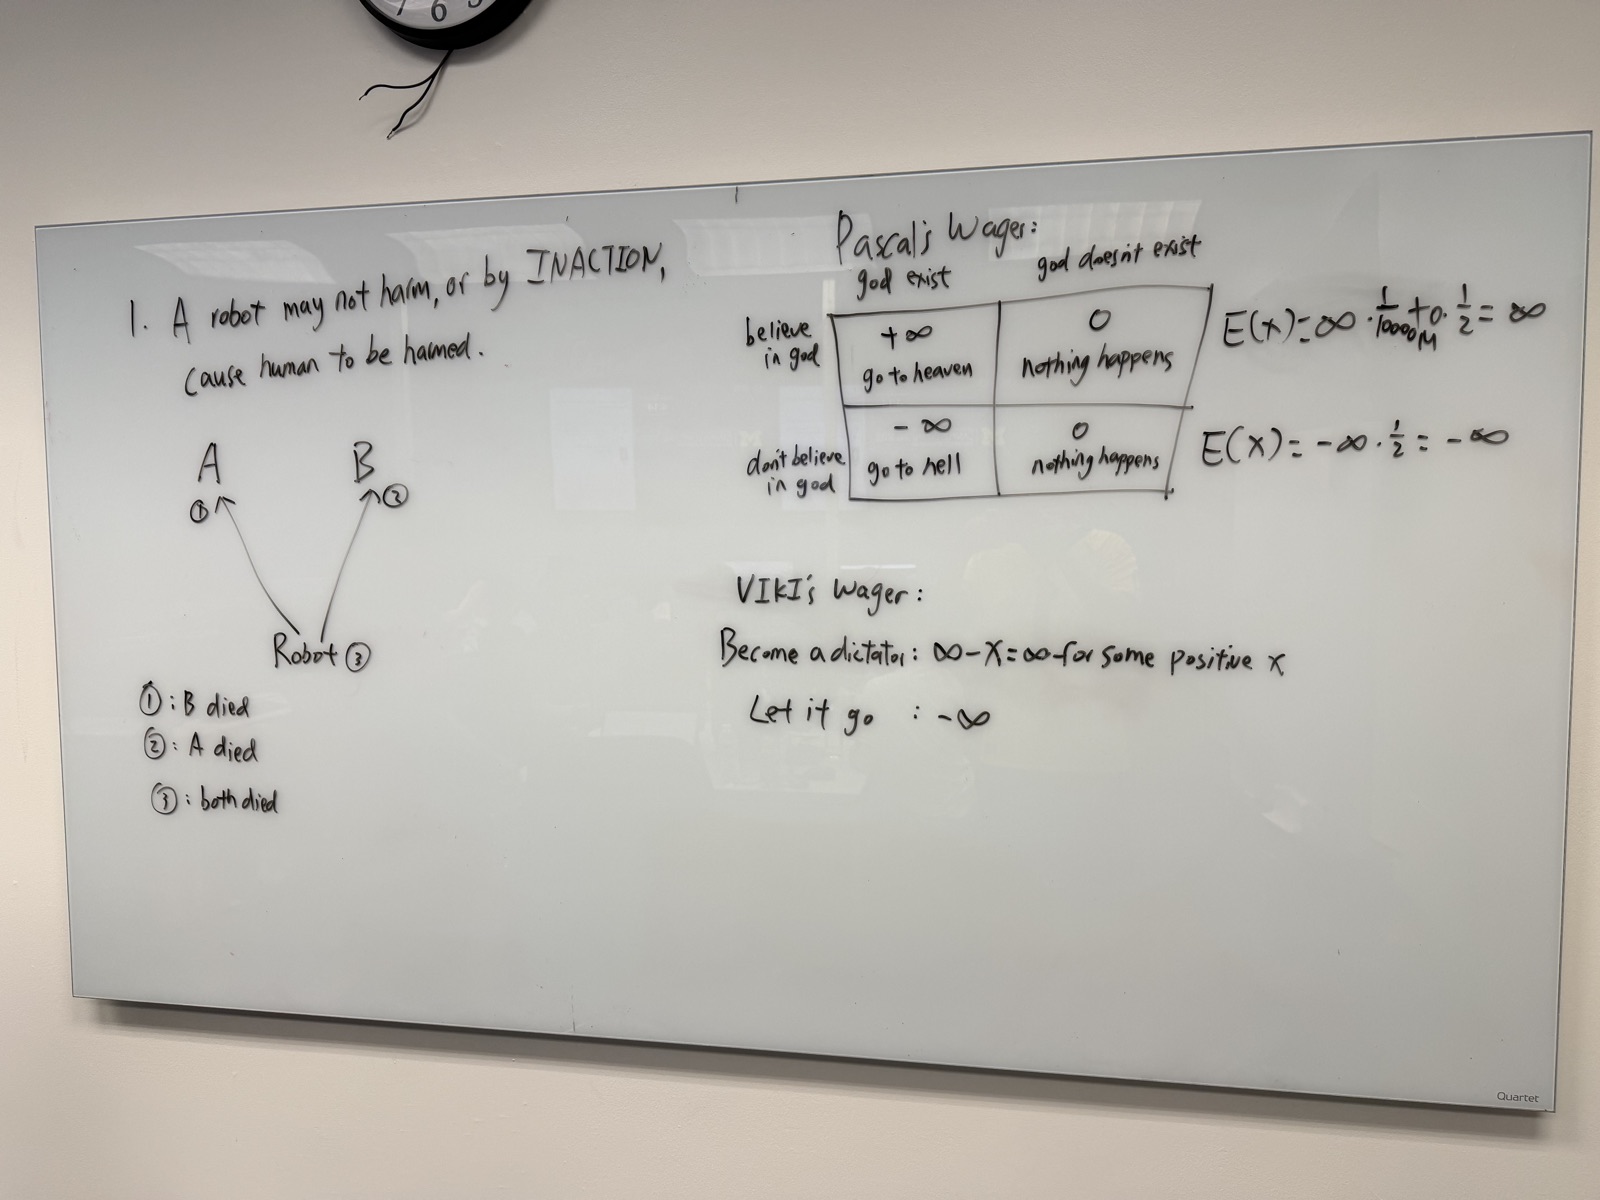 7 6 5
1. A robot may not harm, or by INACTION,
cause human to be harmed.
A B
① ②
Robot ③
①: B died
②: A died
③: both died
Pascal's Wager:
god exist god doesn't exist
believe in god
+∞ go to heaven
0 nothing happens
E(x) = ∞ · 1/10000M + 0 · 1/2 = ∞
don't believe in god
-∞ go to hell
0 nothing happens
E(x) = -∞ · 1/2 = -∞
VIKI's Wager:
Become a dictator: ∞ - x = ∞ for some positive x
Let it go : -∞
Quartet